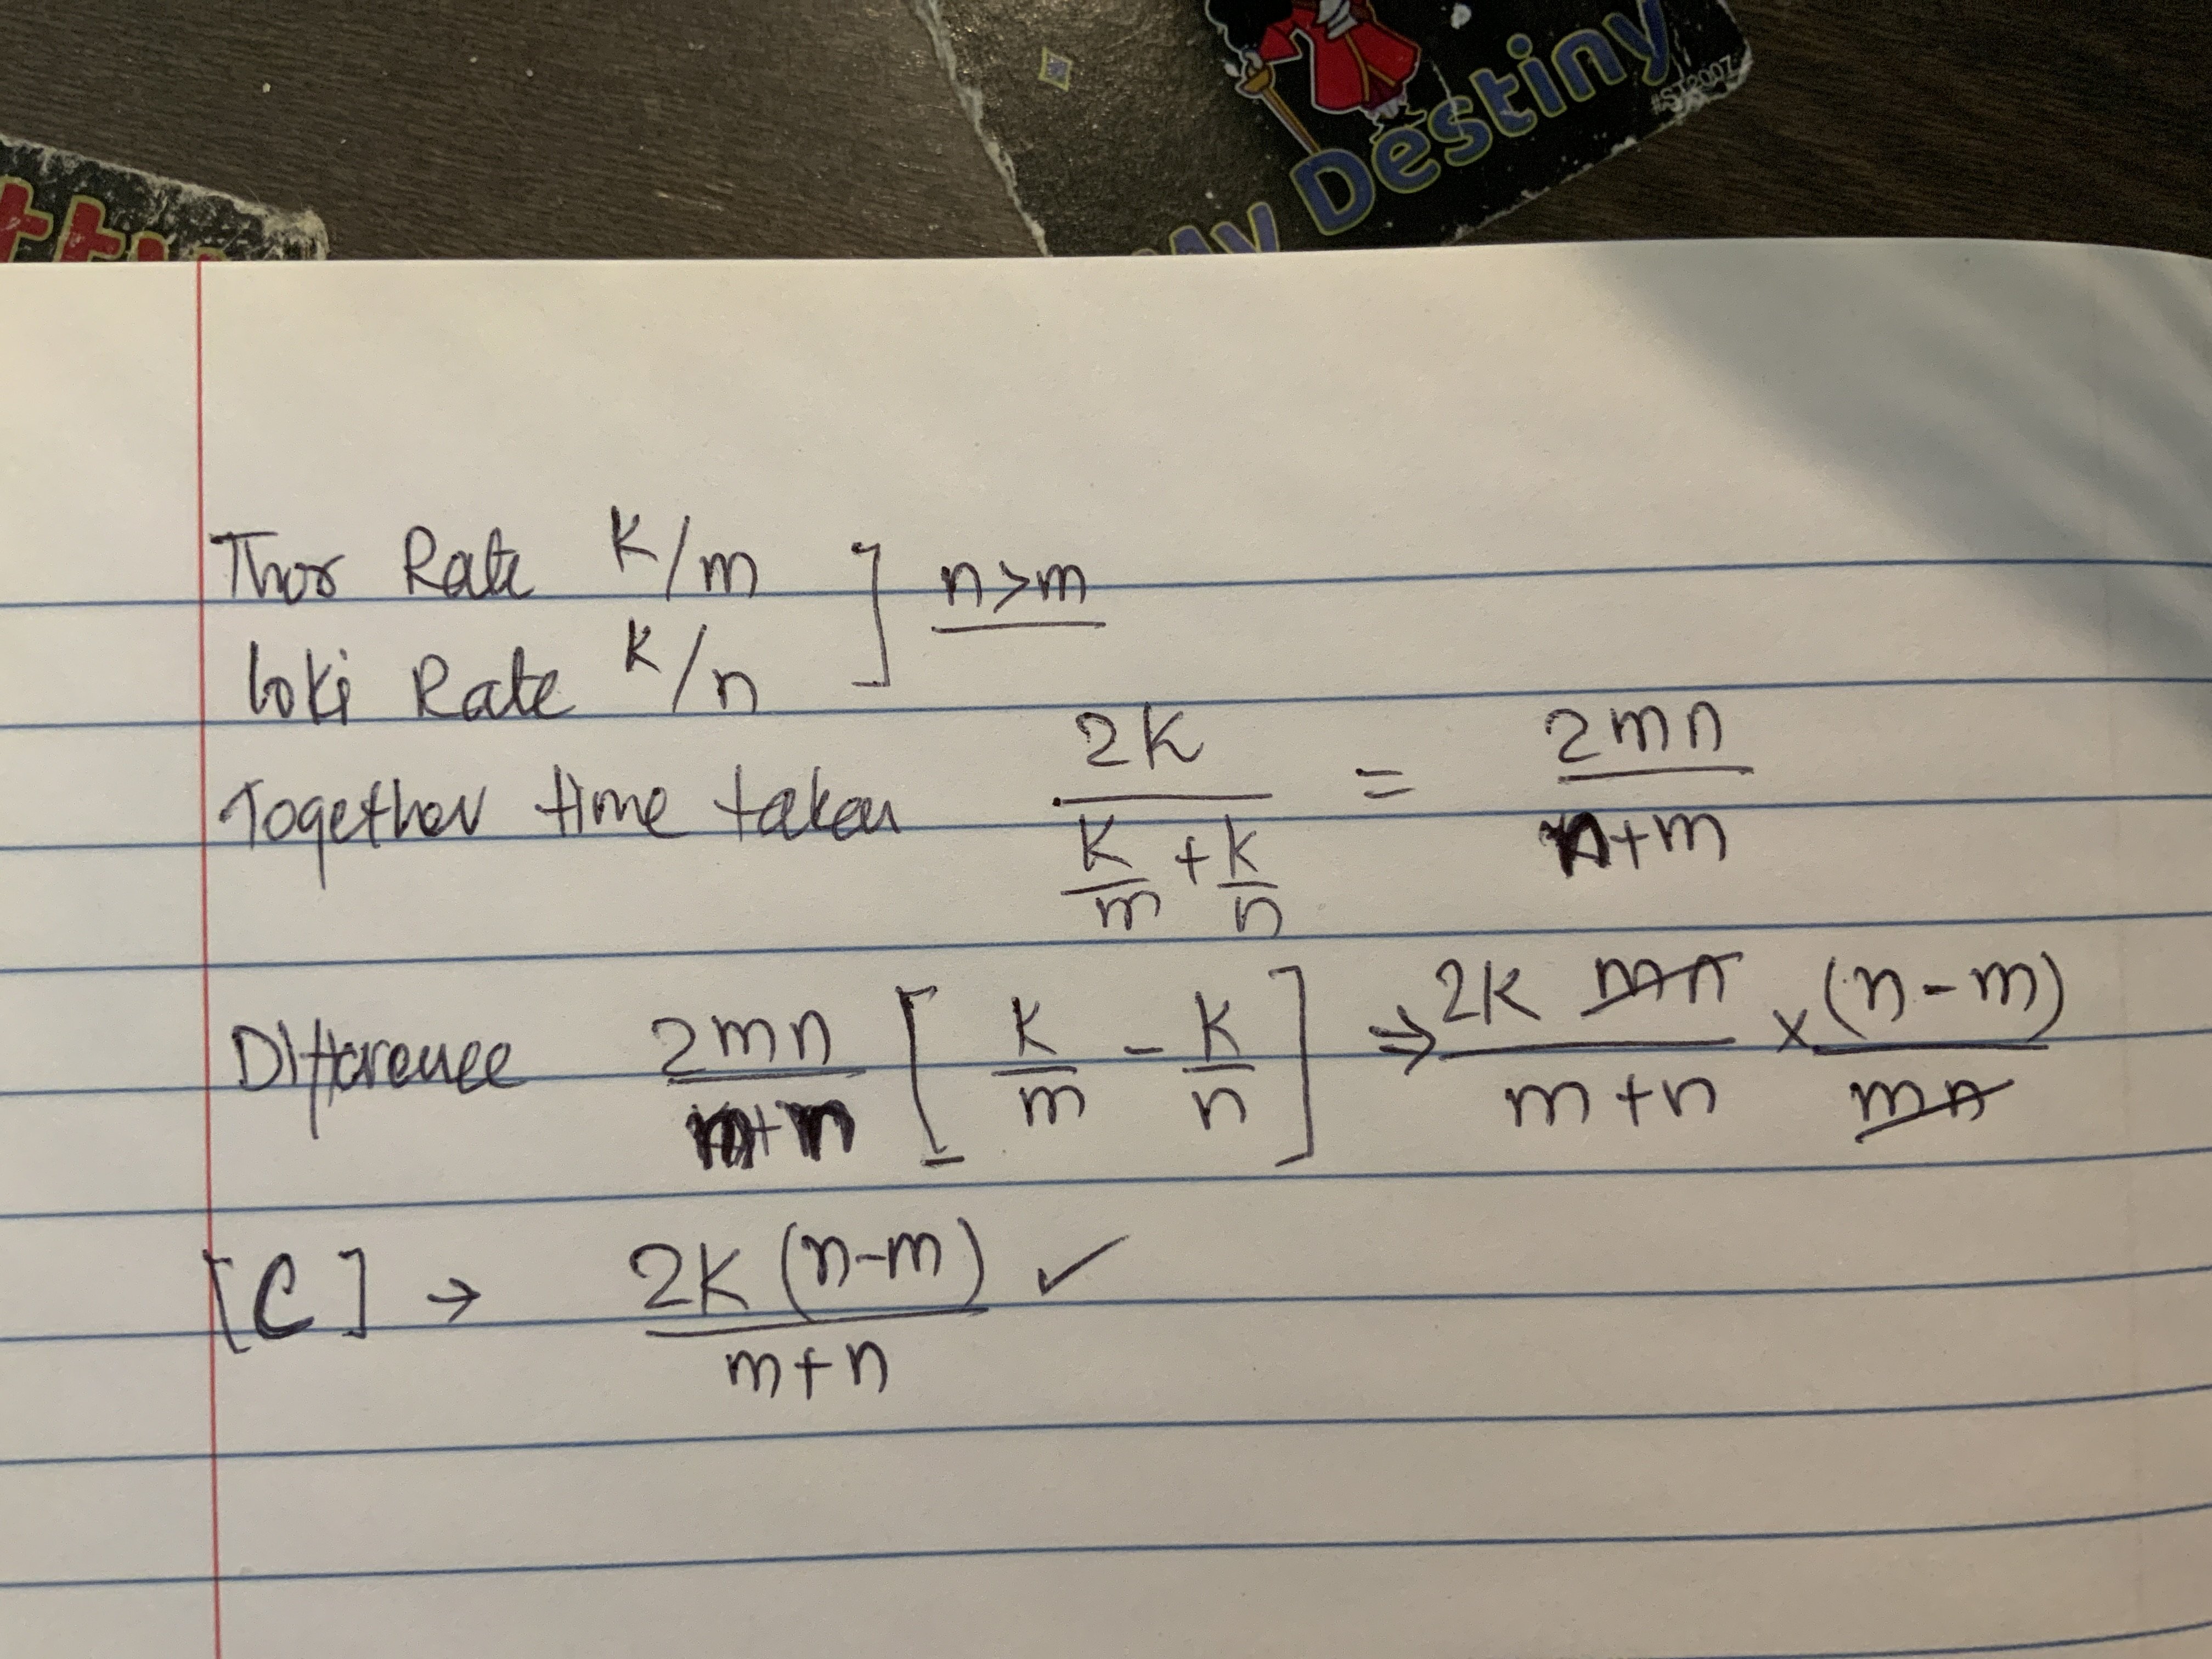 My Destiny
#ST2007
Thor Rate K/m ] n>m
loki Rate K/n
Together time taken 2K / (K/m + K/n) = 2mn / (n+m)
Difference 2mn / (m+n) [ K/m - K/n ] ⇒ 2K mn / (m+n) × (n-m) / mn
[C] → 2K (n-m) / (m+n) ✓